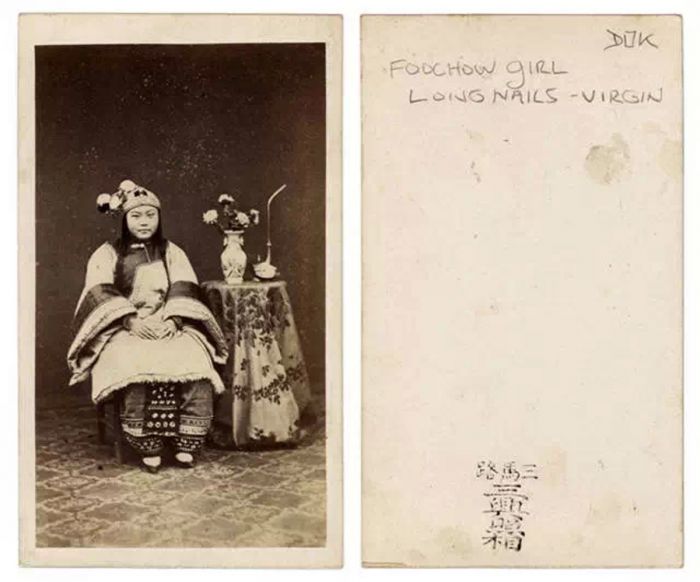 FOOCHOW GIRL
LONG NAILS - VIRGIN
三馬路
三興